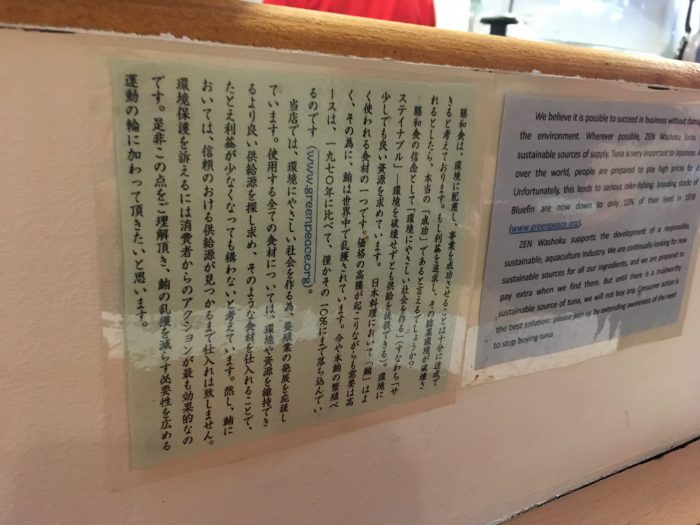 膳和食は、環境に配慮し、事業を成功させることは十分に達成で
きると考えております。もし利益を追求し、その結果環境が破壊さ
れるとしたら、本当の「成功」であると言えるでしょうか？
膳和食の信念として「環境にやさしい社会を作る」（すなわち「サ
ステイナブル」―環境を破壊せずとも供給を提供できる）。環境に
少しでも良い資源を求めています。 日本料理において「鮪」はよ
く使われる食材の一つです。価格の高騰が起こりながらも需要は高
く、その為に、鮪は世界中で乱獲されています。今や本鮪の繁殖ベ
ースは、一九七〇年に比べて、僅かその一〇％にまで落ち込んでい
るのです (www.greenpeace.org)。
当店では、環境にやさしい社会を作る為、養殖業の発展を応援し
ています。使用する全ての食材については、環境や資源を維持でき
るより良い供給源を探し求め、そのような食材を仕入れることで、
たとえ利益が少なくなっても構わないと考えています。然し、鮪に
おいては、信頼のおける供給源が見つかるまで仕入れは致しません。
環境保護を訴えるには消費者からのアクションが最も効果的なの
です。是非この点をご理解頂き、鮪の乱獲を減らす必要性を広める
運動の輪に加わって頂きたいと思います。
We believe it is possible to succeed in business without
the environment. Wherever possible, ZEN Washoku looks
sustainable sources of supply. Tuna is very important to Japanese.
over the world, people are prepared to pay high prices for
Unfortunately, this leads to serious over-fishing; breeding stocks
Bluefin are now down to only 10% of their level in 1970
(www.greenpeace.org).
ZEN Washoku supports the development of a responsible,
sustainable, aquaculture industry. We are continually looking for
sustainable sources for all our ingredients, and we are prepared to
pay extra when we find them. But until there is a trustworthy
sustainable source of tuna, we will not buy any. Consumer action is
the best solution: please join us by extending awareness of the need
to stop buying tuna.